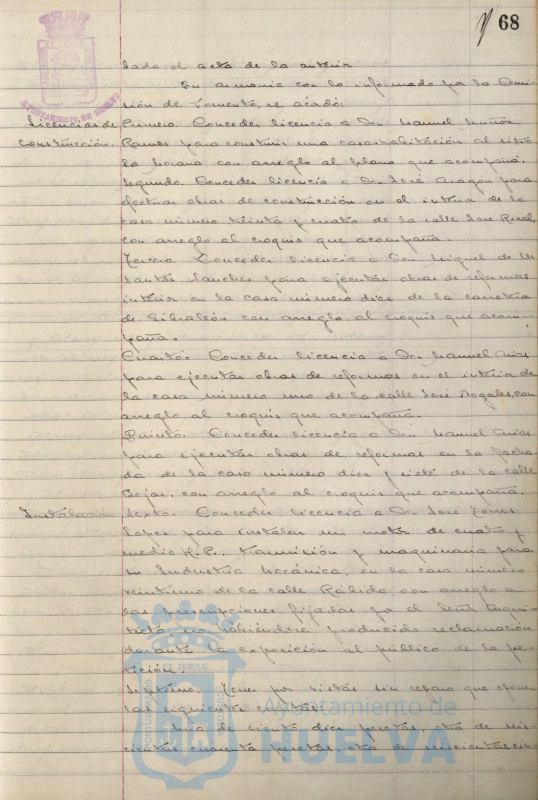 68
AYUNTAMIENTO DE HUELVA
tada el acta de la anterior
En armonia con lo informado por la Comi-
sión de Fomento, se acordó:
Licencias de
construcción.
Primero. Conceder licencia a Don Manuel Muñoz
para construir una casa-habitación al sitio
la Morana con arreglo al plano que acompaña.
Segundo. Conceder licencia a Don José Aragón para
efectuar obras de construcción en el interior de la
casa número treinta y cuatro de la calle José Rizal,
con arreglo al croquis que acompaña.
Tercero. Conceder licencia a Don Miguel de los
Santos Sanchez para ejecutar obras de reformas
interior en la casa número diez de la carretera
de Gibraleón con arreglo al croquis que acom-
paña.
Cuarto. Conceder licencia a Don Manuel Arias
para ejecutar obras de reformas en el interior de
la casa número uno de la calle José Nogales, con
arreglo al croquis que acompaña.
Quinto. Conceder licencia a Don Manuel Arias
para ejecutar obras de reformas en la facha-
da de la casa número diez y siete de la calle
Bejar, con arreglo al croquis que acompaña.
Sexto. Conceder licencia a Don José Torres
Lopez para instalar un motor de cuatro y
medio H.P., transmisión y maquinaria para
su Industria Mecánica, en la casa número
veintiuno de la calle Rábida, con arreglo a
las prescripciones fijadas por el Señor Arqui-
tecto, no habiéndose producido reclamación
durante la exposición al público de la pe-
tición.
Septimo. Tener por vistas sin reparo que oponer
las siguientes cuentas:
Una de ciento diez pesetas, otra de seis-
cientas cuarenta pesetas, otra de seiscientas cin-
Ayuntamiento de
HUELVA